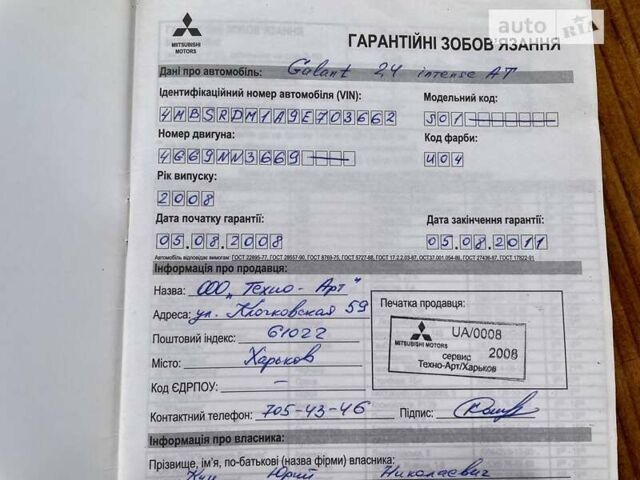 MITSUBISHI
MOTORS
ГАРАНТІЙНІ ЗОБОВ'ЯЗАННЯ
auto RIA
Дані про автомобіль: Galant 24 intense AT
Ідентифікаційний номер автомобіля (VIN): Модельний код:
4MBSRDM1A9E703662 S01
Номер двигуна: Код фарби:
4G69NN3669 U04
Рік випуску:
2008
Дата початку гарантії: Дата закінчення гарантії:
05.08.2008 05.08.2011
Автомобіль відповідає вимогам: ГОСТ 22895-77, ГОСТ 28557-90, ГОСТ 8769-75, ГОСТ 5727-88, ГОСТ 17.2.2.03-87, ОСТ37.001.054-86, ГОСТ 27436-87, ГОСТ 17822-91
Інформація про продавця:
Назва: ООО „Техно-Арт"
Адреса: ул. Клочковская 59
Поштовий індекс: 61022
Місто: Харьков
Код ЄДРПОУ: –
Контактний телефон: 705-43-46 Підпис:
Печатка продавця:
MITSUBISHI MOTORS
UA/0008
сервис 2008
Техно-Арт/Харьков
Інформація про власника:
Прізвище, ім'я, по-батькові (назва фірми) власника:
Юрий Николаевич